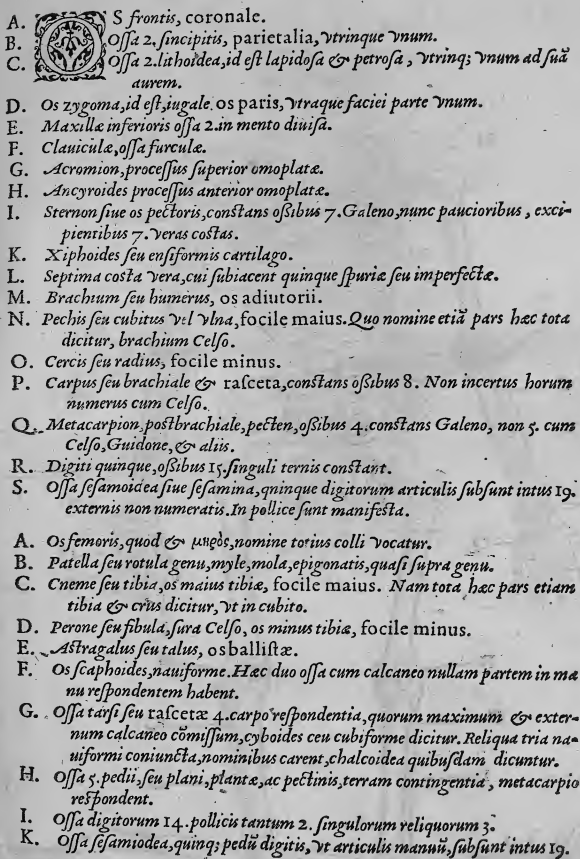 A. OS frontis, coronale.
B. Ossa 2. sincipitis, parietalia, vtrinque vnum.
C. Ossa 2. lithoidea, id est lapidosa & petrosa, vtrinq; vnum ad suā
aurem.
D. Os zygoma, id est, iugale. os paris, vtraque faciei parte vnum.
E. Maxillæ inferioris ossa 2. in mento diuisa.
F. Clauiculæ, ossa furculæ.
G. Acromion, processus superior omoplatæ.
H. Ancyroides processus anterior omoplatæ.
I. Sternon siue os pectoris, constans oßibus 7. Galeno, nunc paucioribus, exci-
pientibus 7. veras costas.
K. Xiphoides seu ensiformis cartilago.
L. Septima costa vera, cui subiacent quinque spuriæ seu imperfectæ.
M. Brachium seu humerus, os adiutorii.
N. Pechis seu cubitus vel vlna, focile maius. Quo nomine etiā pars hæc tota
dicitur, brachium Celso.
O. Cercis seu radius, focile minus.
P. Carpus seu brachiale & rasceta, constans oßibus 8. Non incertus horum
numerus cum Celso.
Q. Metacarpion, postbrachiale, pecten, oßibus 4. constans Galeno, non 5. cum
Celso, Guidone, & aliis.
R. Digiti quinque, oßibus 15. singuli ternis constant.
S. Ossa sesamoidea siue sesamina, qninque digitorum articulis subsunt intus 19.
externis non numeratis. In pollice sunt manifesta.
A. Os femoris, quod & μηρὸς, nomine totius colli vocatur.
B. Patella seu rotula genu, myle, mola, epigonatis, quasi supra genu.
C. Cneme seu tibia, os maius tibiæ, focile maius. Nam tota hæc pars etiam
tibia & crus dicitur, vt in cubito.
D. Perone seu fibula, sura Celso, os minus tibiæ, focile minus.
E. Astragalus seu talus, os ballistæ.
F. Os scaphoides, nauiforme. Hæc duo ossa cum calcaneo nullam partem in ma
nu respondentem habent.
G. Ossa tarsi seu rascetæ 4. carpo respondentia, quorum maximum & exter-
num calcaneo cōmissum, cyboides ceu cubiforme dicitur. Reliqua tria na-
uiformi coniuncta, nominibus carent, chalcoidea quibusdam dicuntur.
H. Ossa 5. pedii, seu plani, plantæ, ac pectinis, terram contingentia, metacarpio
respondent.
I. Ossa digitorum 14. pollicis tantum 2. singulorum reliquorum 3.
K. Ossa sesamiodea, quinq; pedū digitis, vt articulis manuū, subsunt intus 19.